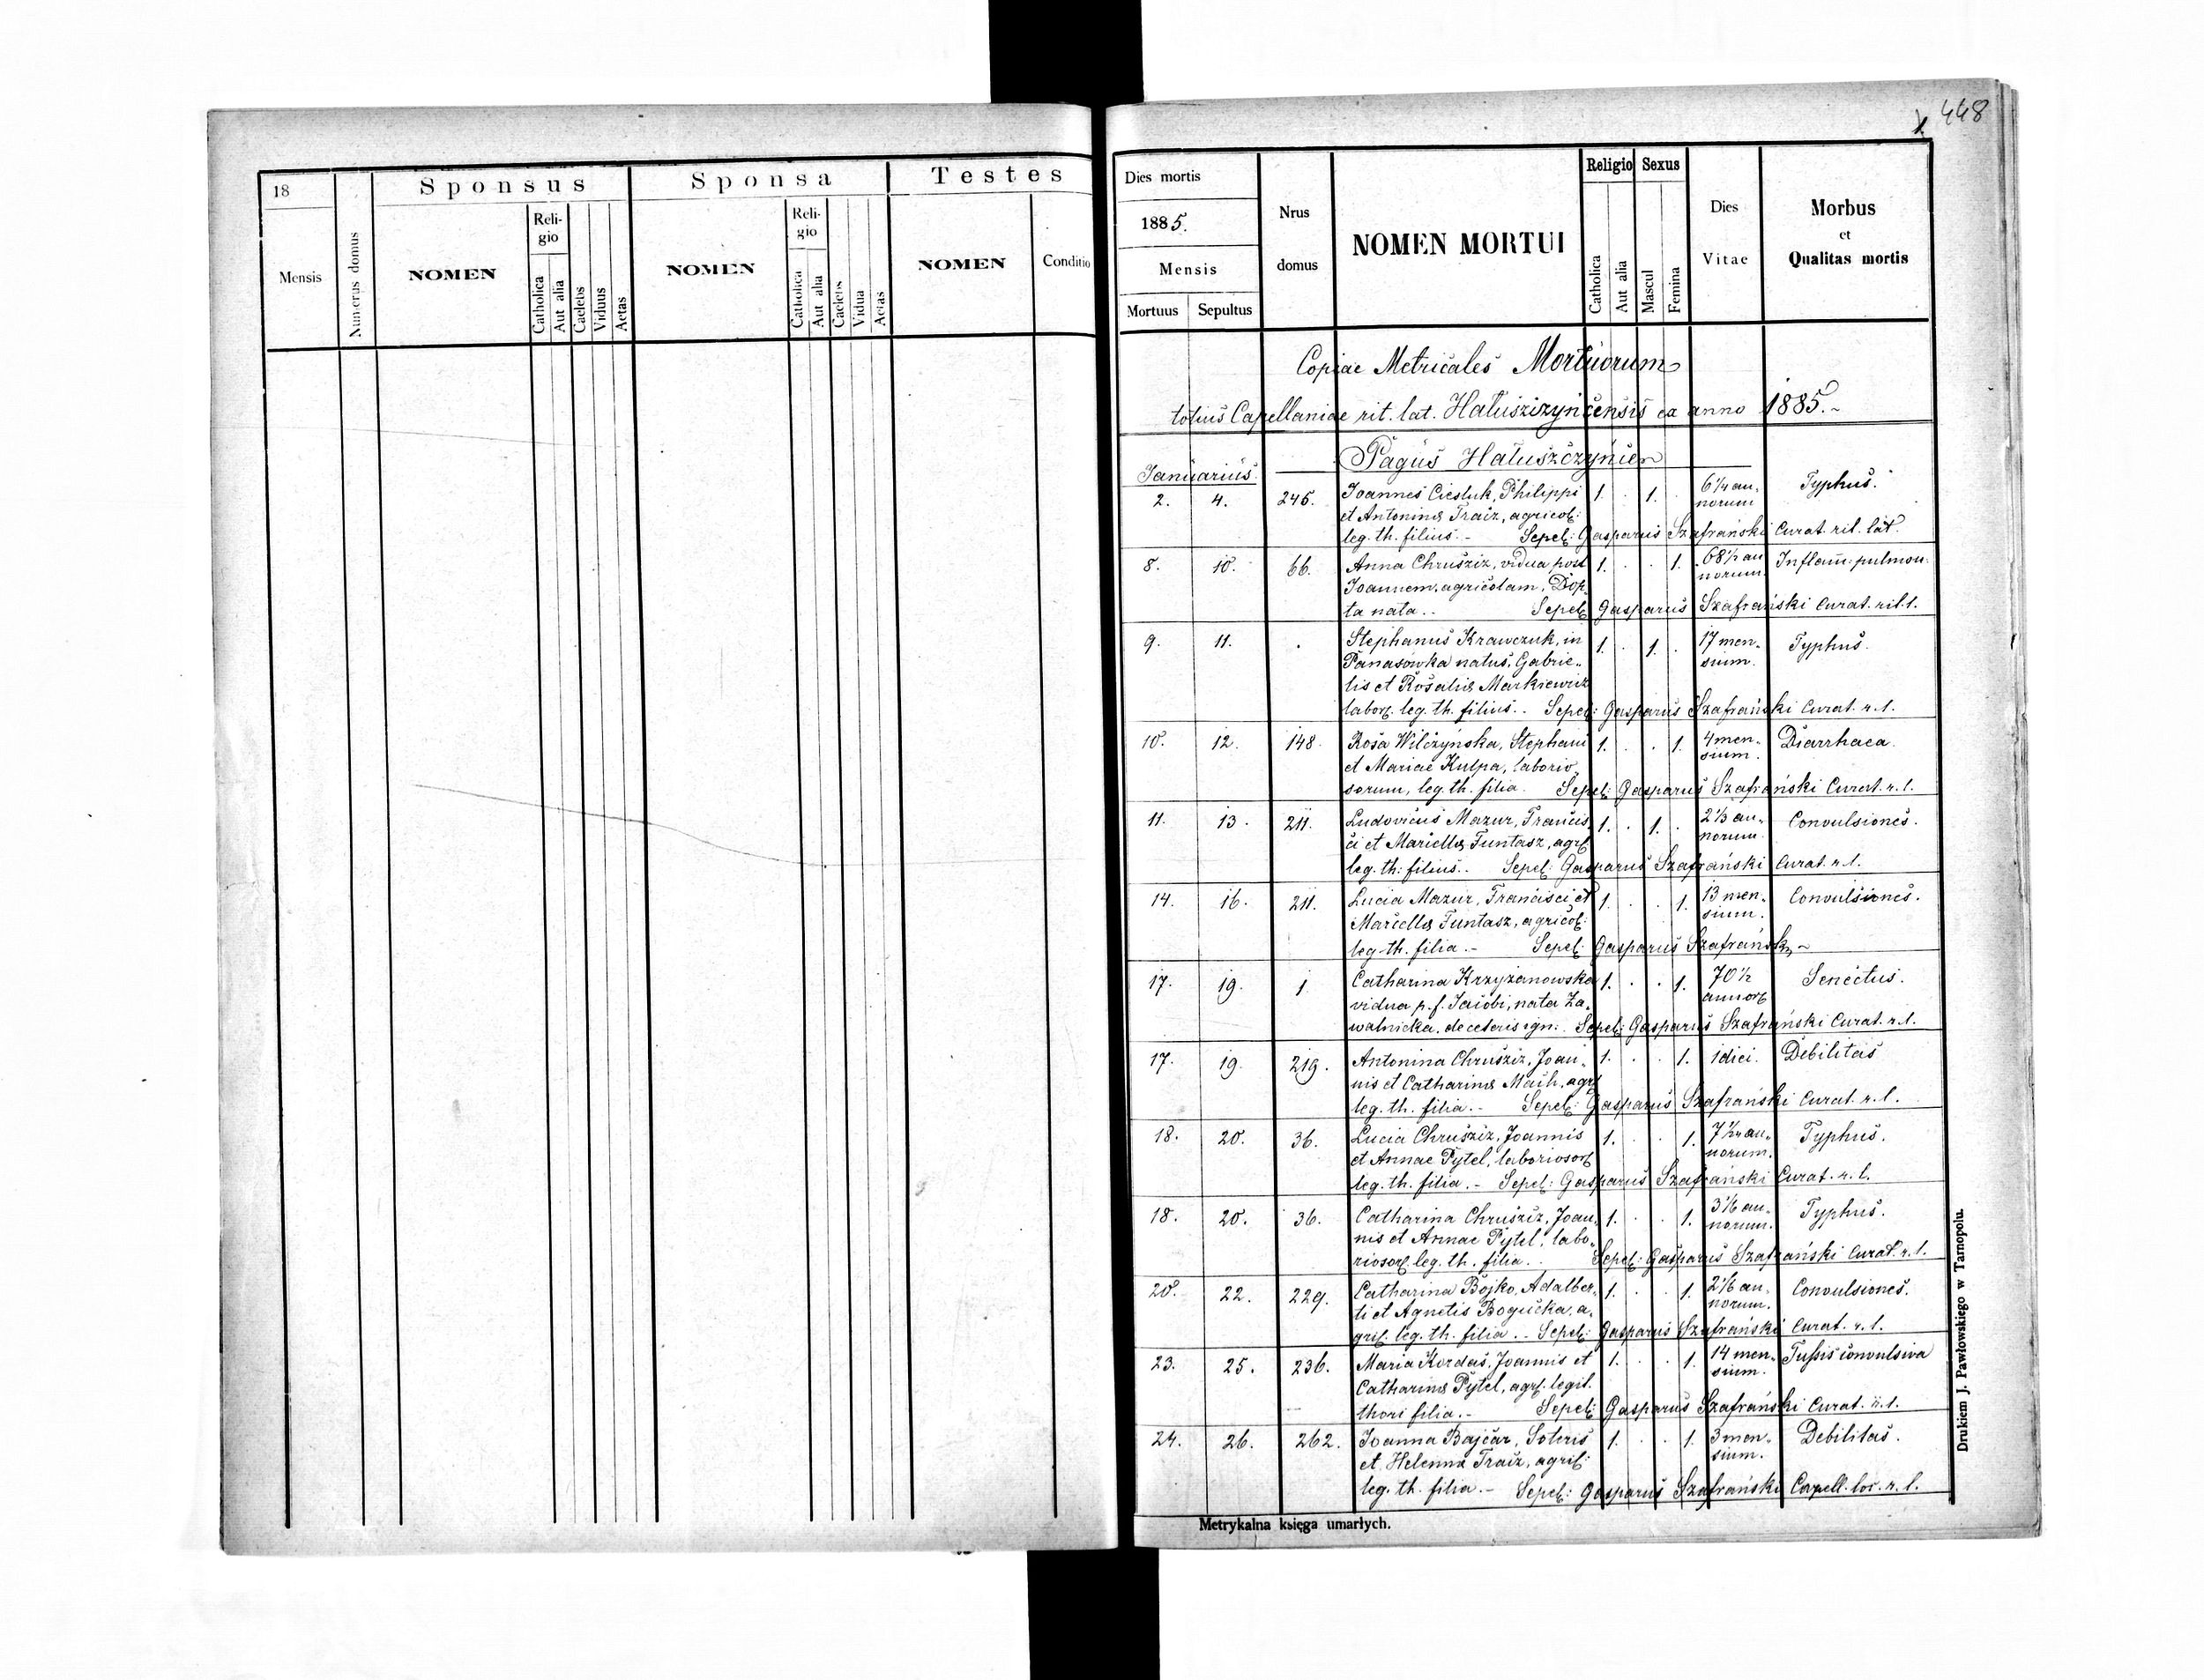 448
1.
18
Sponsus
Sponsa
Testes
Mensis
Numerus domus
NOMEN
Religio
Catholica
Aut alia
Caelebs
Viduus
Aetas
NOMEN
Religio
Catholica
Aut alia
Caelebs
Vidua
Aetas
NOMEN
Conditio
Dies mortis
1885.
Mensis
Mortuus
Sepultus
Nrus
domus
NOMEN MORTUI
Religio
Catholica
Aut alia
Sexus
Mascul
Femina
Dies
Vitae
Morbus
et
Qualitas mortis
Copiae Metricales Mortuorum
totius Capellaniae rit. lat. Hałuszczyncensis ex anno 1885.
Pagus Hałuszczyńce
Januarius
2. 4. 245. Joannes Ciesluk, Philippi 1. . 1. . 6 1/4 an- Typhus.
et Antoninæ Traiz, agricol: norum
leg. th. filius.- Sepel: Gasparus Szafrański Curat. rit. lat.
8. 10. 66. Anna Chruściz, vidua post 1. . . 1. 68 1/2 an Inflam: pulmon:
Joannem, agricolam, Dop norum.
ta nata.. Sepel: Gasparus Szafrański Curat. rit. l.
9. 11. . Stephanus Krawczuk, in 1. . 1. . 17 men- Typhus.
Panasówka natus, Gabrie- sium.
lis et Rosaliæ Markiewicz
labor. leg. th. filius.. Sepel: Gasparus Szafrański Curat. r. l.
10. 12. 148. Rosa Wilczyńska, Stephani 1. . . 1. 4 men- Diarrhaea.
et Mariae Kulpa, laborio sium.
sorum, leg. th. filia. Sepel: Gasparus Szafrański Curat. r. l.
11. 13. 211. Ludovicus Mazur, Francis 1. . 1. . 2 1/3 an- Convulsiones.
ci et Marcellæ Funtasz, agr. norum.
leg. th. filius.. Sepel: Gasparus Szafrański Curat. r. l.
14. 16. 211. Lucia Mazur, Francisci et 1. . . 1. 13 men- Convulsiones.
Marcellæ Funtasz, agricol: sium.
leg. th. filia.- Sepel: Gasparus Szafrański
17. 19. 1 Catharina Krzyżanowska 1. . . 1. 70 1/2 Senectus.
vidua p. f. Jacobi, nata Za- annor.
walnicka, de ceteris ign: Sepel: Gasparus Szafrański Curat. r. l.
17. 19. 219. Antonina Chruściz, Joan- 1. . . 1. 1 diei. Debilitas
nis et Catharinæ Mach, agr.
leg. th. filia.- Sepel: Gasparus Szafrański Curat. r. l.
18. 20. 36. Lucia Chruściz, Joannis 1. . . 1. 7 1/4 an- Typhus.
et Annae Pytel, laboriosor. norum.
leg. th. filia.- Sepel: Gasparus Szafrański Curat. r. l.
18. 20. 36. Catharina Chruściz, Joan- 1. . . 1. 3 1/6 an- Typhus.
nis et Annae Pytel, labo- norum.
riosor. leg. th. filia.. Sepel: Gasparus Szafrański Curat. r. l.
20. 22. 229. Catharina Bojko, Adalber- 1. . . 1. 2 1/6 an- Convulsiones.
ti et Agnetis Bogucka, a- norum.
gric. leg. th. filia.. Sepel: Gasparus Szafrański Curat. r. l.
23. 25. 236. Maria Kordas, Joannis et 1. . . 1. 14 men- Tussis convulsiva
Catharinæ Pytel, agr. legit. sium.
thori filia.- Sepel: Gasparus Szafrański Curat. r. l.
24. 26. 262. Joanna Bajcar, Soteris 1. . . 1. 3 men- Debilitas.
et Helenna Traiz, agric: sium.
leg. th. filia.- Sepel: Gasparus Szafrański Capell. loc. r. l.
Metrykalna księga umarłych.
Drukiem J. Pawłowskiego w Tarnopolu.